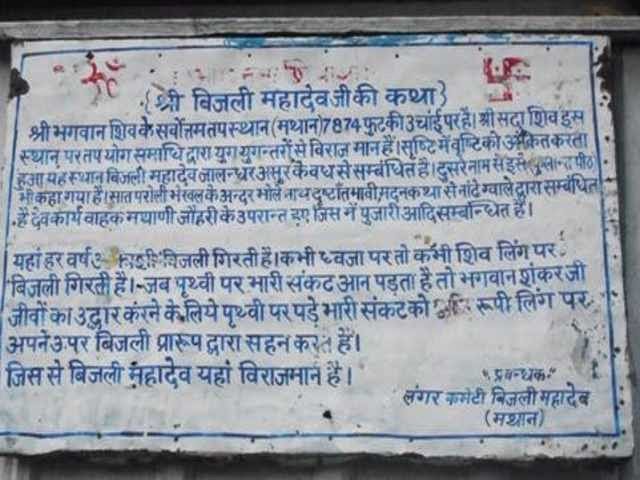 ॐ
{श्री बिजली महादेव जी की कथा}
श्री भगवान शिव के सर्वोत्तम तप स्थान (मथान) 7874 फुट की उंचाई पर है। श्री सदा शिव इस
स्थान पर तप योग समाधि द्वारा युग युगन्तरों से विराज मान है। सृष्टि में वृष्टि को अंकित करता
हुआ यह स्थान बिजली महादेव जालन्धर असुर के वध से सम्बंधित है। दुसरे नाम से इसे पीठ
भी कहा गया है। सात परोली भेखल के अन्दर भोले नाथ दुष्टांत भावी, मदन कथा से नांढे ग्वाले द्वारा सम्बंधित
है देव कार्य वाहक मथाणी जौहरी के उपरान्त हुए जिस में पुजारी आदि सम्बन्धित है।
यहां हर वर्ष बिजली गिरती है। कभी ध्वजा पर तो कभी शिव लिंग पर
बिजली गिरती है। जब पृथ्वी पर भारी संकट आन पड़ता है तो भगवान शंकर जी
जीवों का उद्धार करने के लिये पृथ्वी पर पड़े भारी संकट को रूपी लिंग पर
अपने उपर बिजली प्रारूप द्वारा सहन करते हैं।
जिस से बिजली महादेव यहां विराजमान है।
"प्रबन्धक"
लंगर कमेटी बिजली महादेव
(मथान)